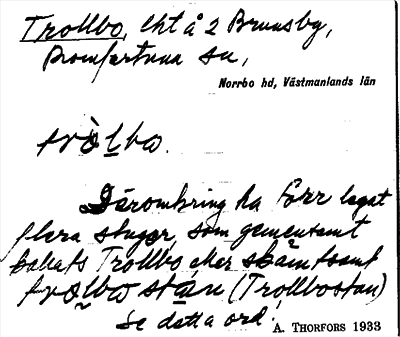 Trollbo, lht å 2 Brunsby,
Romfartuna sn,
Norrbo hd, Västmanlands län
tròlbo.
Däromkring ha förr legat
flera stugor, som gemensamt
kallats Trollbo eller skämtsamt
tròlbo stan (Trollbostan)
Se detta ord.
A. THORFORS 1933